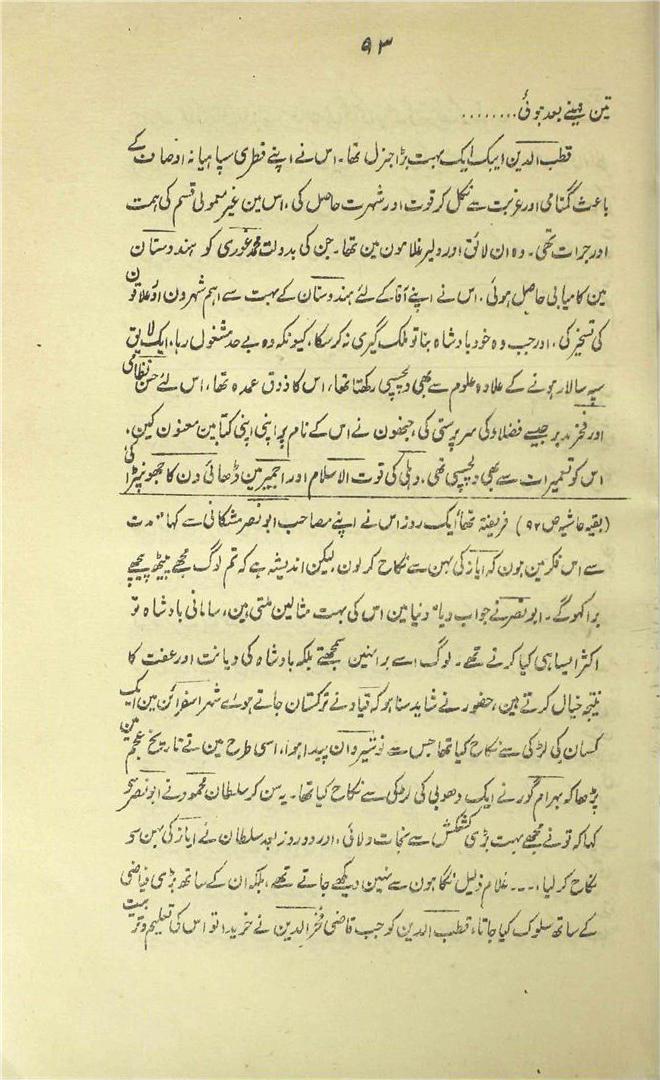 ۹۳
تین مہینے بعد ہوئی........
قطب الدین ایبک ایک بہت بڑا جنرل تھا۔ اس نے اپنے فطری سپاہیانہ اوصاف کے
باعث گمنامی اور غربت سے نکل کر قوت اور شہرت حاصل کی، اس مین غیر معمولی قسم کی ہمت
اور جرات تھی۔ وہ ان لائق اور دلیر غلامون مین تھا۔ جن کی بدولت محمد غوری کو ہندوستان
مین کامیابی حاصل ہوئی۔ اس نے اپنے آقا کے لئے ہندوستان کے بہت سے اہم شہرون اور علاقون
کی تسخیر کی، اور جب وہ خود بادشاہ بنا تو ملک گیری نہ کر سکا، کیونکہ وہ بے حد مشغول رہا، ایک لایق
سپہ سالار ہونے کے علاوہ علوم سے بھی دلچسپی رکھتا تھا، اس کا ذوق عمدہ تھا، اس لئے حسن نظامی
اور فخر مدبر جیسے فضلاء کی سرپرستی کی، جنھون نے اس کے نام پر اپنی اپنی کتابین معنون کین،
اس کو تعمیرات سے بھی دلچسپی تھی، دہلی کی قوت الاسلام اور اجمیر مین ڈھائی دن کا جھونپڑا کی
(بقیہ حاشیہ ص ۹۲) فریفتہ تھا، ایک روز اس نے اپنے مصاحب ابو نصر مشکانی سے کہا "مدت
سے اس فکر مین ہون کہ ایاز کی بہن سے نکاح کر لون، لیکن اندیشہ ہے کہ تم لوگ مجھے پیٹھ پیچھے
برا کہو گے۔ ابو نصر نے جواب دیا" دنیا مین اس کی بہت مثالین ملتی ہین، سامانی بادشاہ تو
اکثر ایسا ہی کیا کرتے تھے۔ لوگ اسے برا نہین سمجھتے بلکہ بادشاہ کی دیانت اور عفت کا
نتیجہ خیال کرتے ہین، حضور نے شاید سنا ہو کہ قباد نے ترکستان جاتے ہوئے شہر اسفرائن مین ایک
کسان کی لڑکی سے نکاح کیا تھا جس سے نوشیروان پیدا ہوا، اسی طرح مین نے تاریخ عجم مین
پڑھا کہ بہرام گور نے ایک دھوبی کی لڑکی سے نکاح کیا تھا۔ یہ سن کر سلطان محمود نے ابو نصر سے
کہا کہ تونے مجھے بہت بڑی کشمکش سے نجات دلائی، اور دو روز بعد سلطان نے ایاز کی بہن سے
نکاح کر لیا،... غلام ذلیل نگاہون سے نہین دیکھے جاتے تھے، بلکہ ان کے ساتھ بڑی فیاضی
کے ساتھ سلوک کیا جاتا، قطب الدین کو جب قاضی فخر الدین نے خریدا تو اس کی تعلیم و تربیت